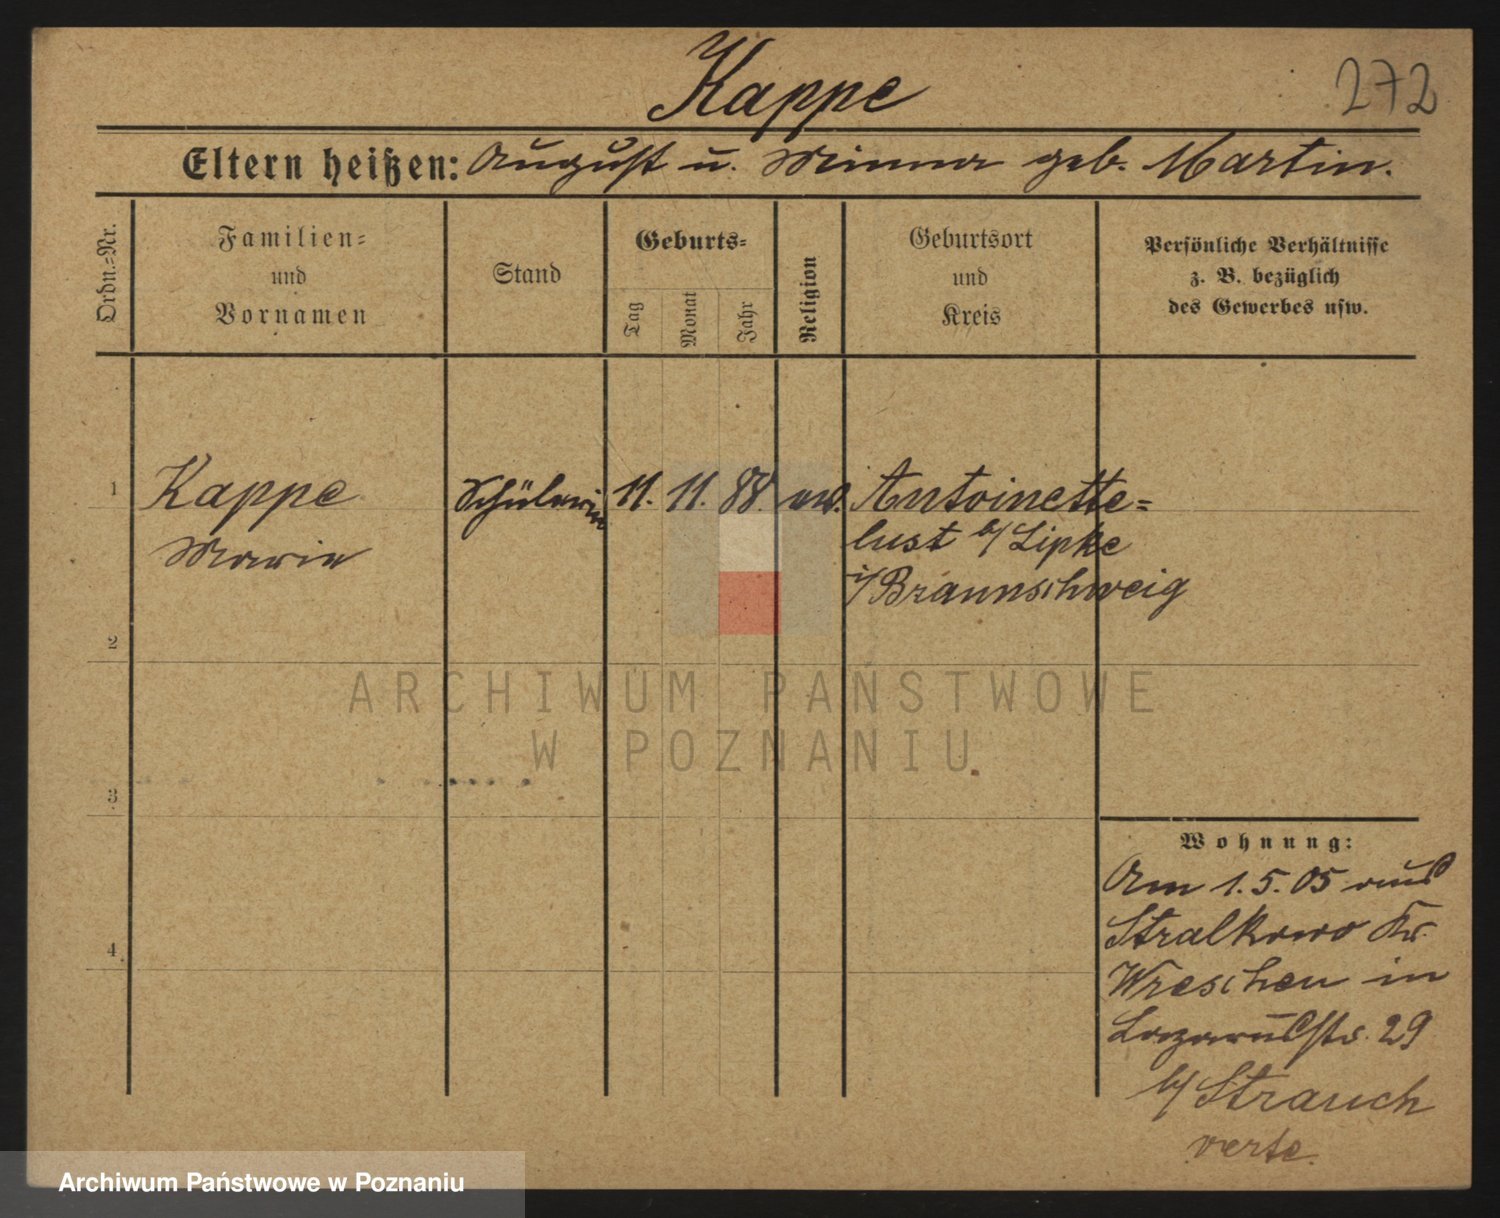 Kappe
272
Eltern heißen: August u. Minna geb. Martin.
Ordn.=Nr.
Familien=
und
Vornamen
Stand
Geburts=
Tag
Monat
Jahr
Religion
Geburtsort
und
Kreis
Persönliche Verhältnisse
z. B. bezüglich
des Gewerbes usw.
1
Kappe
Marie
Schülerin
11. 11. 88.
Antoinette=
lust b/ Lipke
i/ Braunschweig
2
ARCHIWUM PAŃSTWOWE
W POZNANIU
3
4
Wohnung:
Am 1.5.05 aus
Stralkowo Kr.
Wreschen in
Lazarusstr. 29
b/ Strauch
verte.
Archiwum Państwowe w Poznaniu